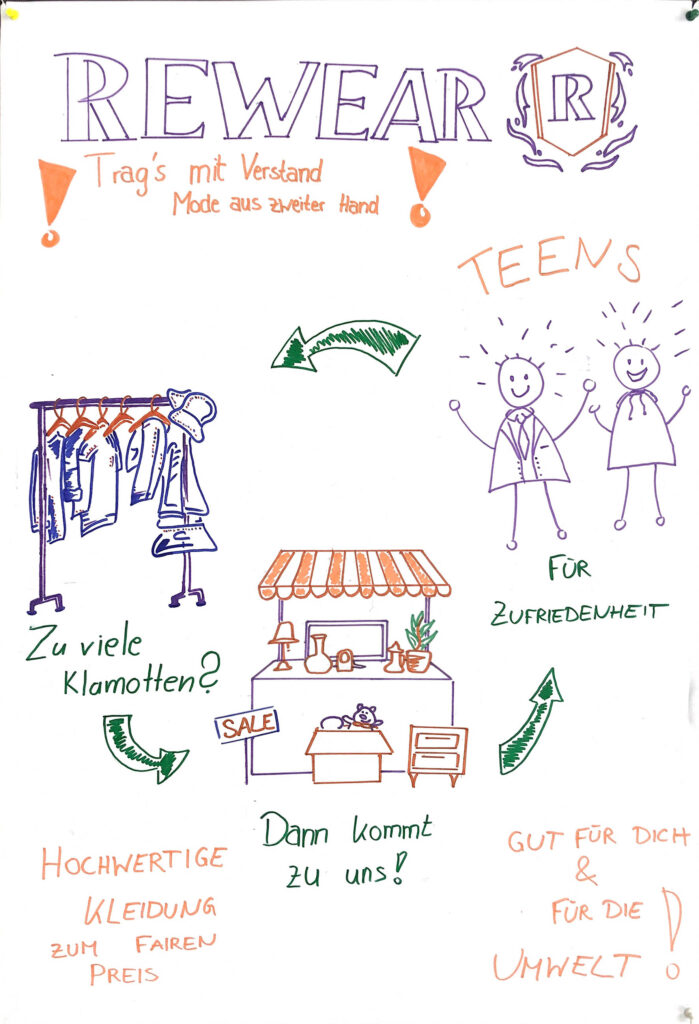 REWEAR
R
Trag's mit Verstand
Mode aus zweiter Hand
TEENS
FÜR
ZUFRIEDENHEIT
Zu viele
Klamotten?
SALE
Dann kommt
zu uns!
HOCHWERTIGE
KLEIDUNG
ZUM FAIREN
PREIS
GUT FÜR DICH
&
FÜR DIE
UMWELT!